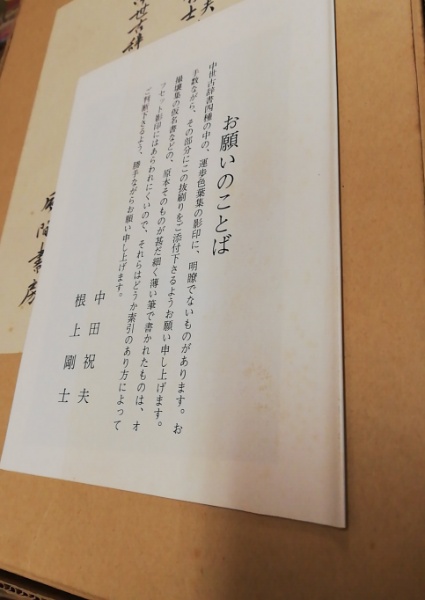 お願いのことば
中世古辞書四種の中の、運歩色葉集の影印に、明瞭でないものがあります。お
手数ながら、その部分にこの抜刷りをご添付下さるようお願い申し上げます。
撮壌集の仮名書などの、原本そのものが甚だ細く薄い筆で書かれたものは、オ
フセット影印にはあらわれにくいので、それらはどうか索引のあり方によって
ご判断下さるよう、勝手ながらお願い申し上げます。
中田祝夫
根上剛士
夫
士
世古辞
風間書房